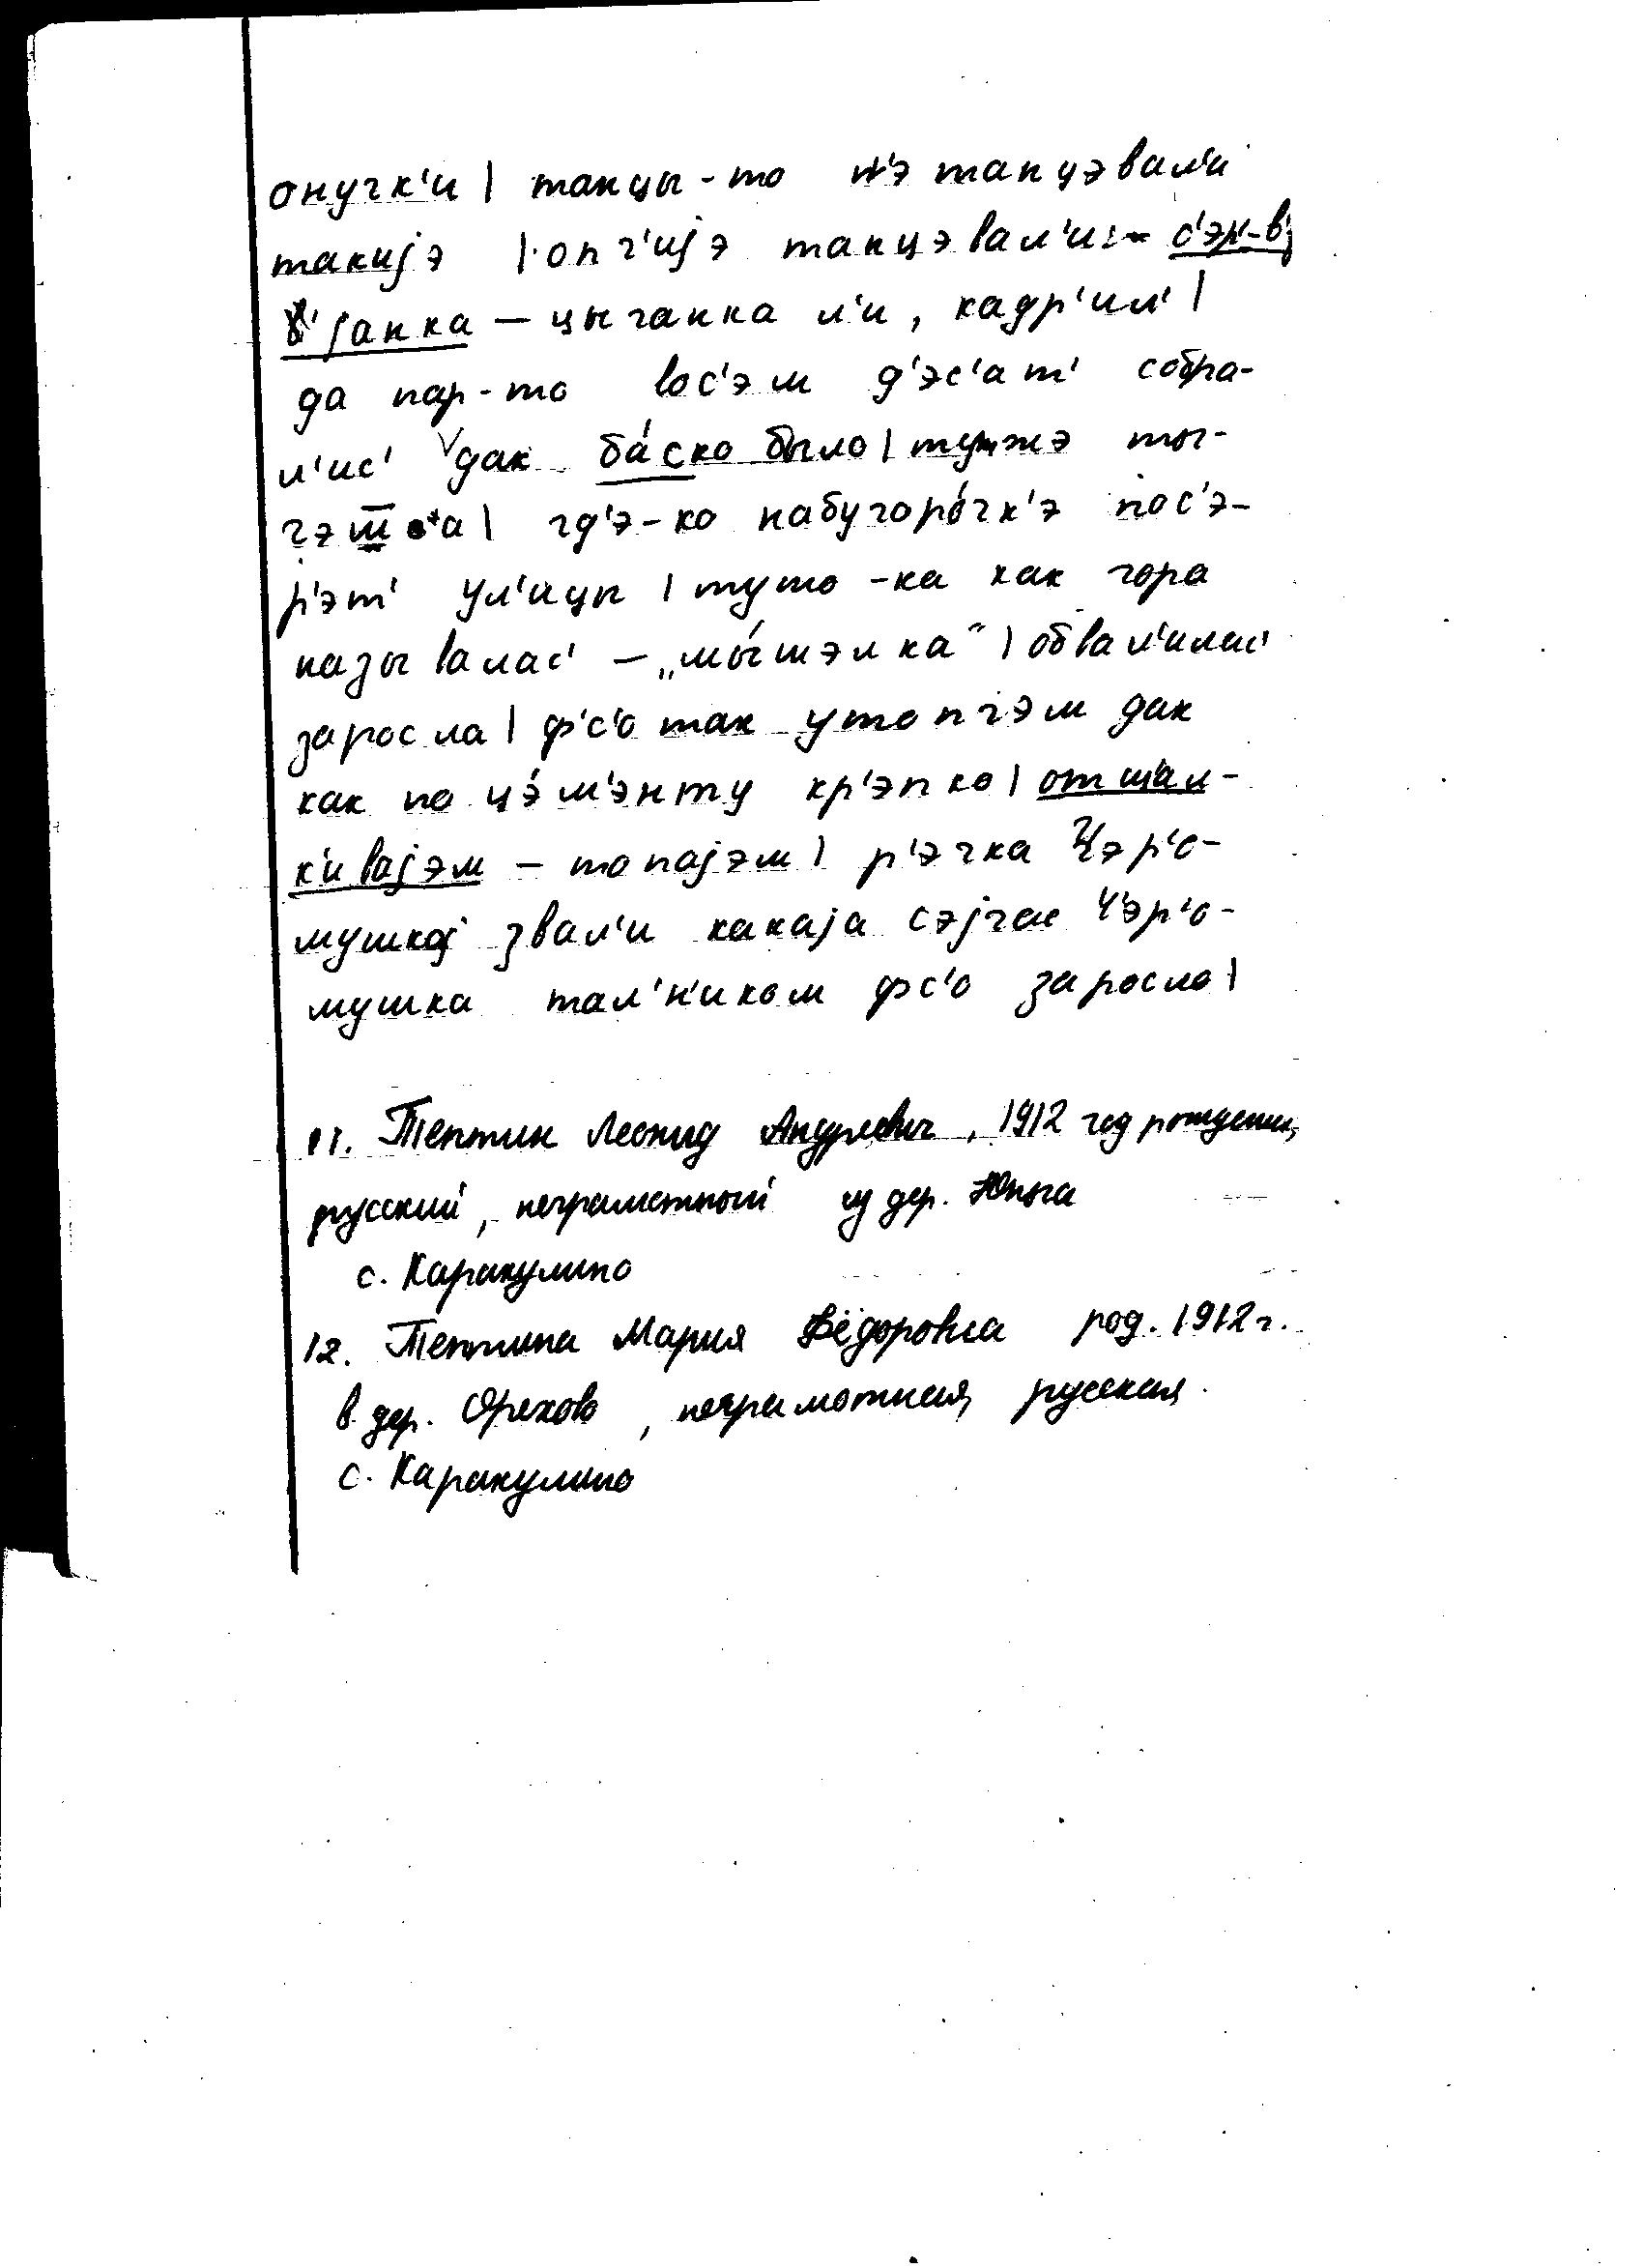 онучк'и | танцы-то н'э танцэвал'и
такијэ | опч'ијэ танцэвал'и:- с'эн-в'
јанка – цыганка л'и, кадр'ил' |
да пар-то вос'эм д'эс'ат' собра-
л'ис' дак ба́ско было | тутжэ ты-
гд'э-ко набугоро́чк'э пос'э-
р'эт' ул'ицы | туто-ка как гора
называлас' – „мы́шэлка" | обвал'илас'
заросла | ф'с'о так утопчэм дак
как по цэ́м'энту кр'эпко | отшал-
к'ивајэм – топајэм | р'эчка Чэр'о-
мушкој звал'и какаја сэјчас Ч'эр'о-
мушка тал'н'иком фс'о заросло |
11. Тептин Леонид Андреевич, 1912 год рождения,
русский, неграмотный из дер. Юньга
с. Каракулино
12. Тептина Мария Фёдоровна род. 1912 г.
в дер. Орехово, неграмотная, русская.
с. Каракулино